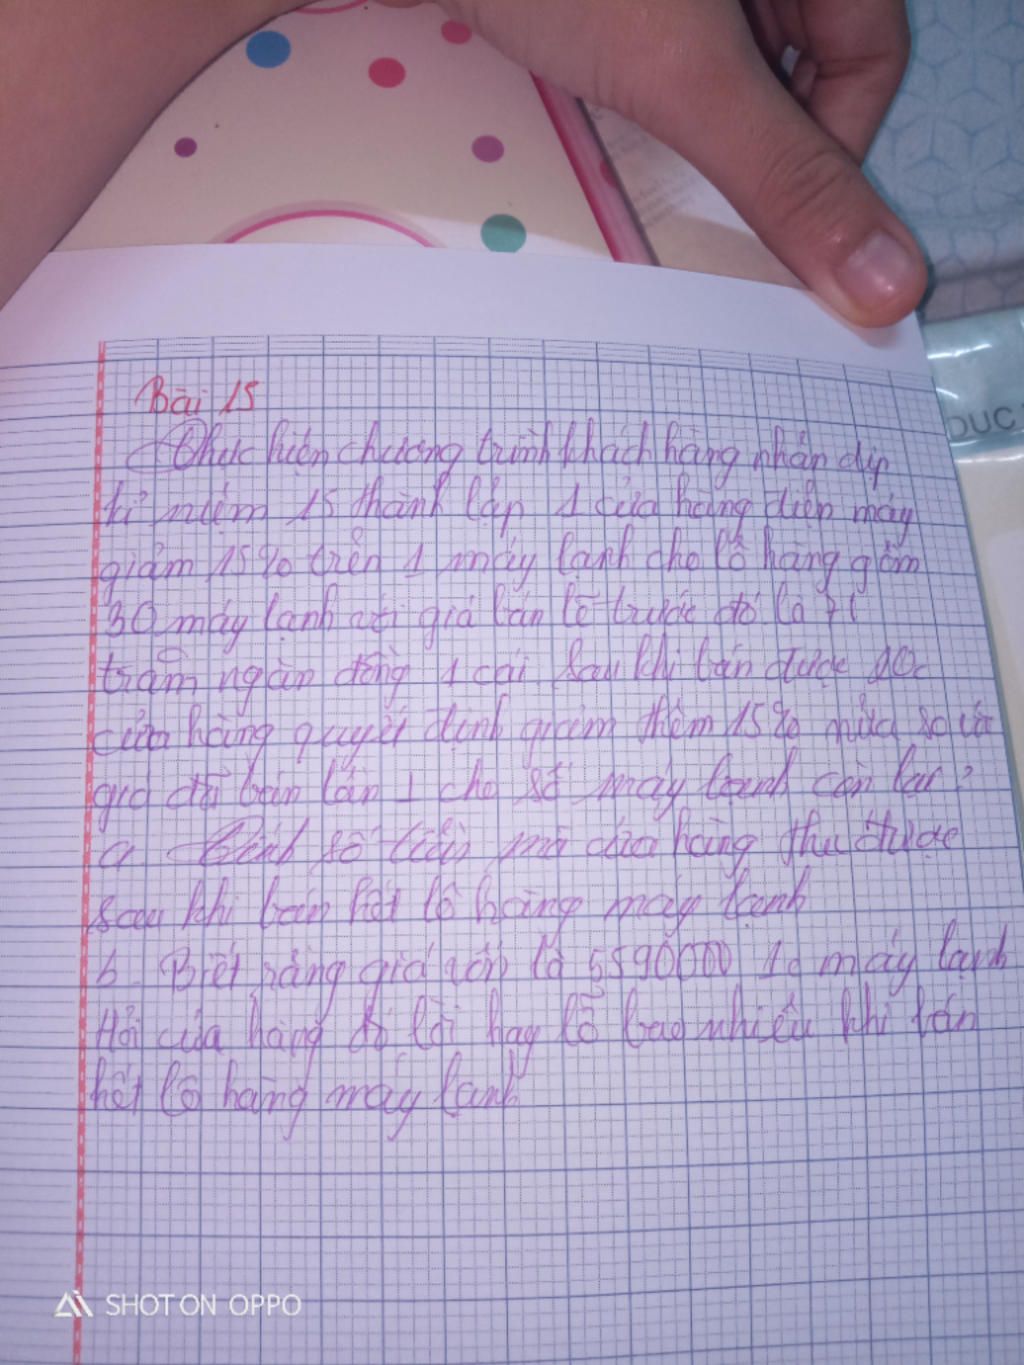 DUC
Bài 15
Thực hiện chương trình khách hàng nhân dịp
kỉ niệm 15 thành lập 1 cửa hàng điện máy
giảm 15% trên 1 máy lạnh cho lô hàng gồm
30 máy lạnh với giá bán lẻ trước đó là 7t
trăm ngàn đồng 1 cái sau khi bán được 20c
cửa hàng quyết định giảm thêm 15% nữa so với
giá đã bán lần 1 cho số máy lạnh còn lại?
a. Tính số tiền mà cửa hàng thu được
sau khi bán hết lô hàng máy lạnh
b. Biết rằng giá vốn là 5590000 1d máy lạnh
Hỏi cửa hàng đó lời hay lỗ bao nhiêu khi bán
hết lô hàng máy lạnh
SHOT ON OPPO